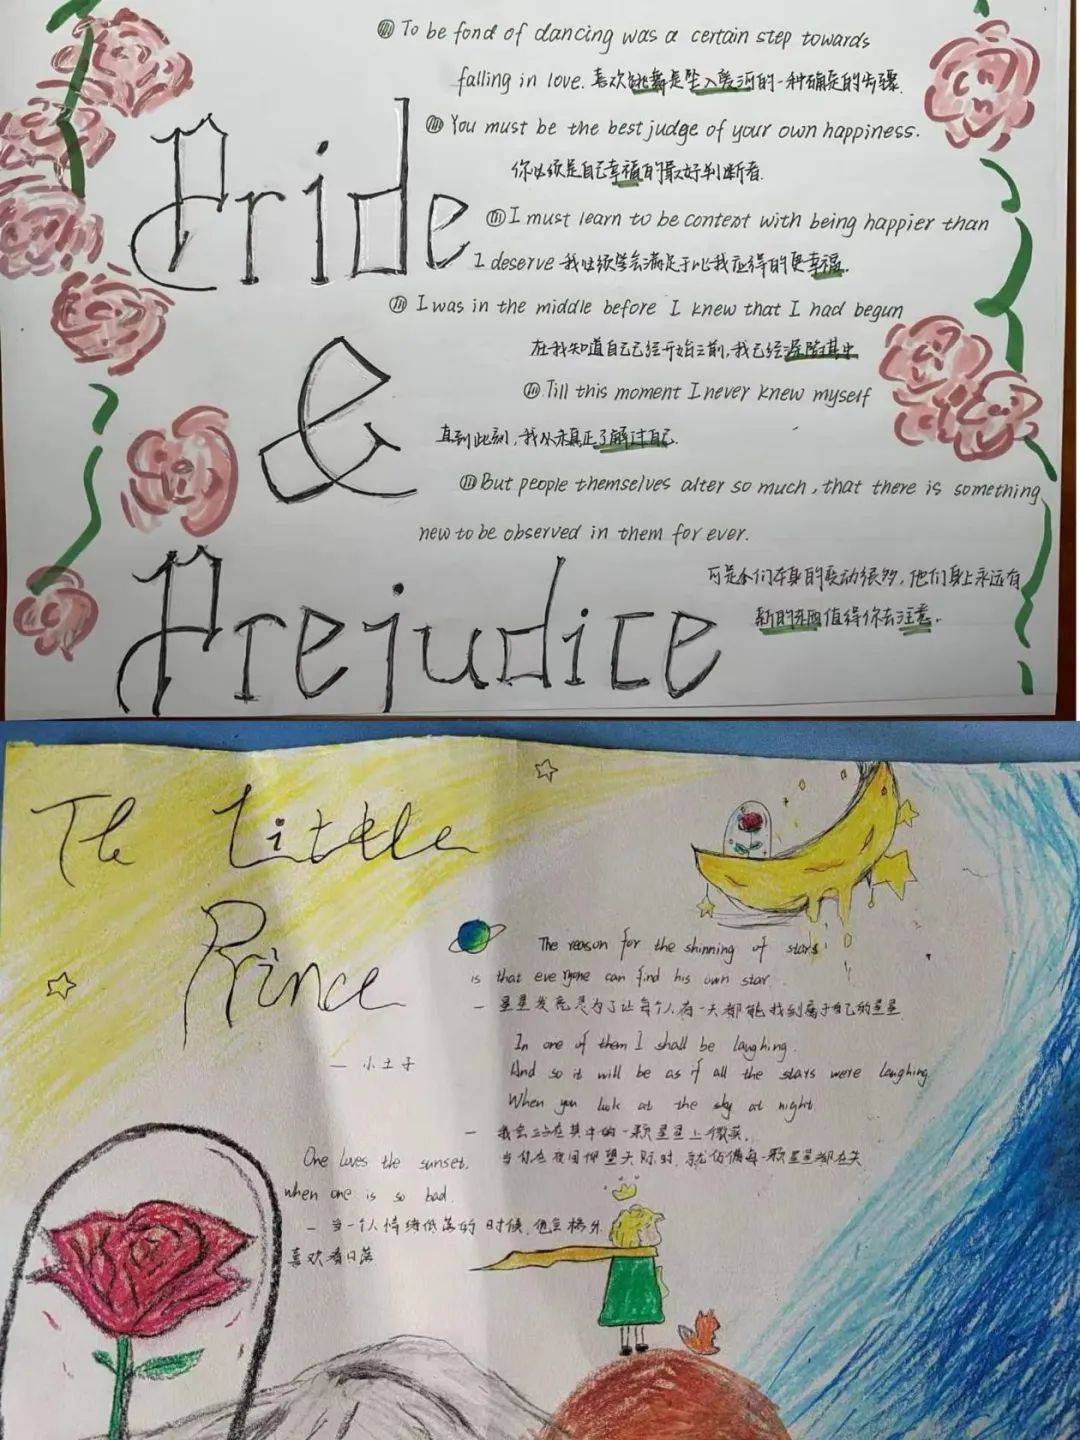 To be fond of dancing was a certain step towards
falling in love. 喜欢跳舞是坠入爱河的一种确定的步骤.
Pride
You must be the best judge of your own happiness.
你必须是自己幸福的最好判断者.
I must learn to be content with being happier than
I deserve 我必须学会满足于比我应得的更幸福.
I was in the middle before I knew that I had begun
在我知道自己已经开始之前,我已经深陷其中
&
Till this moment I never knew myself
直到此刻,我从未真正了解过自己.
But people themselves alter so much, that there is something
new to be observed in them for ever.
Prejudice
可是人们本身的变动很多,他们身上永远有
新的东西值得你去注意.
The Little
Prince
The reason for the shinning of stars
is that everyone can find his own star.
— 星星发亮是为了让每个人有一天都能找到属于自己的星星.
In one of them I shall be laughing.
— 小王子
And so it will be as if all the stars were laughing
When you look at the sky at night.
— 我会站在其中的一颗星星上微笑.
当你在夜间仰望天际时,就仿佛每一颗星星都在笑
One loves the sunset,
when one is so bad.
— 当一个人情绪低落的时候,他会格外
喜欢看日落